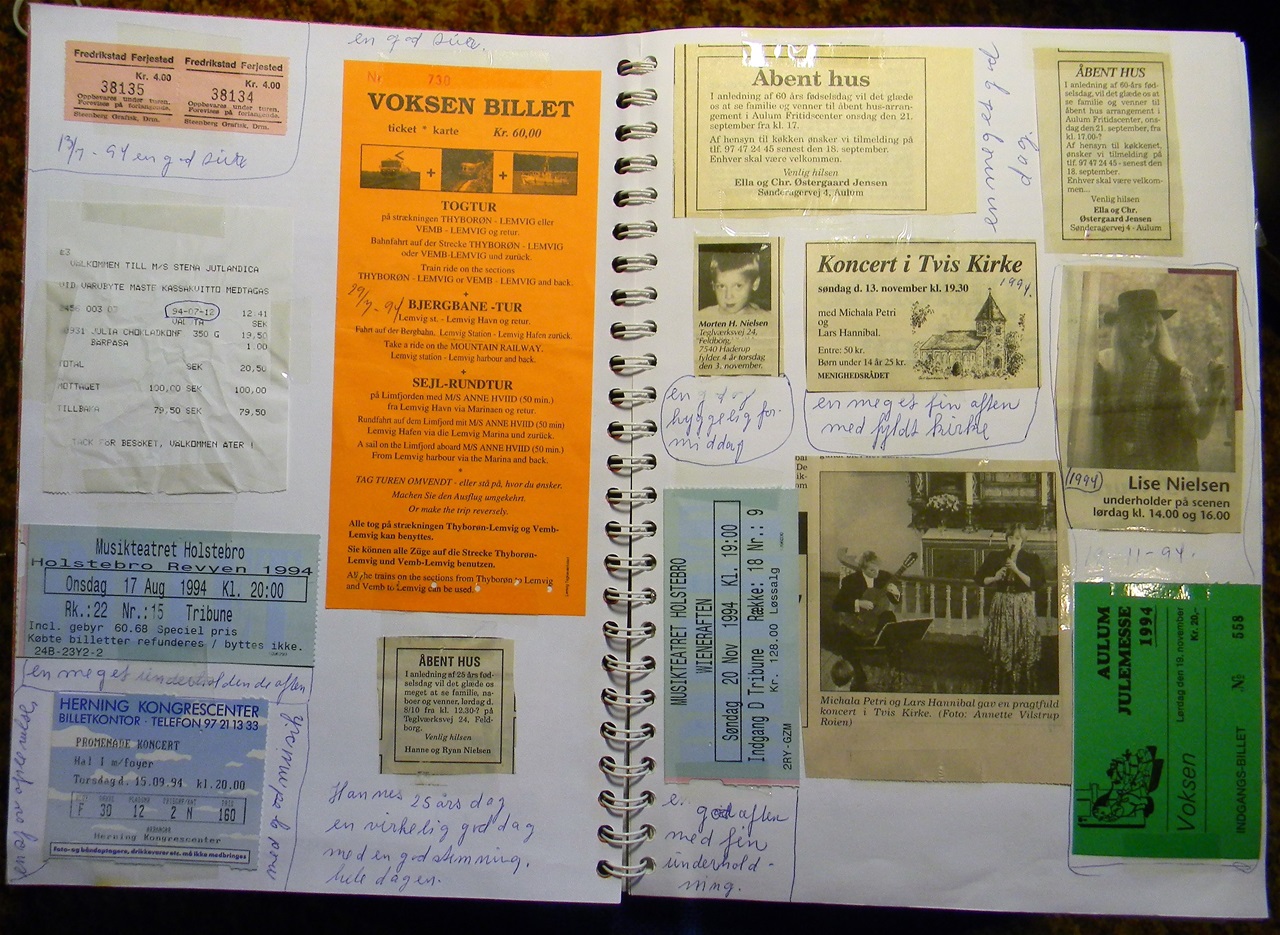 Fredrikstad Ferjested
Kr. 4.00
38135
Oppbevares under turen.
Forevises på forlangende.
Steenberg Grafisk, Drm.
Fredrikstad Ferjested
Kr. 4.00
38134
Oppbevares under turen.
Forevises på forlangende.
Steenberg Grafisk, Drm.
13/7-94 en god tur
VÄLKOMMEN TILL M/S STENA JUTLANDICA
VID VARUBYTE MÅSTE KASSAKVITTO MEDTAGAS
003 07 94-07-12 12 41
VALUTA SEK
0931 JULIA CHOKLADKONF 350 G 19,50
BÄRPÅSA 1.00
TOTAL SEK 20,50
MOTTAGET 100,00 SEK 100,00
TILLBAKA 79,50 SEK 79,50
TACK FÖR BESÖKET, VÄLKOMMEN ÅTER !
Musikteatret Holstebro
Holstebro Revyen 1994
Onsdag 17 Aug 1994 Kl. 20:00
Rk.:22 Nr.:15 Tribune
Incl. gebyr 60.68 Speciel pris
Købte billetter refunderes / byttes ikke.
24B-23Y2-2
en meget underholdende aften
HERNING KONGRESCENTER
BILLETKONTOR · TELEFON 97 21 13 33
PROMENADE KONCERT
Hal I m/foyer
Torsdag d. 15.09.94 kl.20.00
F 30 12 2 N 160
ARRANGØR
Herning Kongrescenter
Foto- og båndoptagere, drikkevarer etc. må ikke medbringes
en god tur.
Nr 730
VOKSEN BILLET
ticket * karte Kr. 60,00
+ +
TOGTUR
på strækningen THYBORØN - LEMVIG eller
VEMB - LEMVIG og retur.
Bahnfahrt auf der Strecke THYBORØN - LEMVIG
oder VEMB-LEMVIG und zurück.
Train ride on the sections
THYBORØN - LEMVIG or VEMB - LEMVIG and back.
+
29/7-94
BJERGBANE -TUR
Lemvig st. - Lemvig Havn og retur.
Fahrt auf der Bergbahn. Lemvig Station - Lemvig Hafen zurück.
Take a ride on the MOUNTAIN RAILWAY.
Lemvig station - Lemvig harbour and back.
+
SEJL-RUNDTUR
på Limfjorden med M/S ANNE HVIID (50 min.)
fra Lemvig Havn via Marinaen og retur.
Rundfahrt auf dem Limfjord mit M/S ANNE HVIID (50 min)
Lemvig Hafen via die Lemvig Marina und zurück.
A sail on the Limfjord aboard M/S ANNE HVIID (50 min.)
From Lemvig harbour via the Marina and back.
*
TAG TUREN OMVENDT - eller stå på, hvor du ønsker.
Machen Sie den Ausflug umgekehrt.
Or make the trip reversely.
Alle tog på strækningen Thyborøn-Lemvig og Vemb-
Lemvig kan benyttes.
Sie können alle Züge auf die Strecke Thyborøn-
Lemvig und Vemb-Lemvig benutzen.
All the trains on the sections from Thyborøn to Lemvig
and Vemb to Lemvig can be used.
ÅBENT HUS
I anledning af 25 års fød-
selsdag vil det glæde os
meget at se familie, na-
boer og venner, lørdag d.
8/10 fra kl. 12.30-? på
Teglværksvej 24, Feld-
borg.
Venlig hilsen
Hanne og Ryan Nielsen
Hannes 25 års dag
en virkelig god dag
med en god stemning.
hele dagen.
Åbent hus
I anledning af 60 års fødselsdag vil det glæde
os at se familie og venner til åbent hus-arran-
gement i Aulum Fritidscenter onsdag den 21.
september fra kl. 17.
Af hensyn til køkken ønsker vi tilmelding på
tlf. 97 47 24 45 senest den 18. september.
Enhver skal være velkommen.
Venlig hilsen
Ella og Chr. Østergaard Jensen
Sønderagervej 4, Aulum
en meget god
dag.
ÅBENT HUS
I anledning af 60-års fød-
selsdag, vil det glæde os
at se familie og venner til
åbent hus arrangement i
Aulum Fritidscenter, ons-
dag den 21. september, fra
kl. 17.00-?
Af hensyn til køkkenet,
ønsker vi tilmelding på
tlf. 97 47 24 45 - senest den
18. september.
Enhver skal være velkom-
men...
Venlig hilsen
Ella og Chr.
Østergaard Jensen
Sønderagervej 4 - Aulum
Morten H. Nielsen
Teglværksvej 24,
Feldborg,
7540 Haderup
fylder 4 år torsdag
den 3. november.
en god og
hyggelig for-
middag
Koncert i Tvis Kirke
søndag d. 13. november kl. 19.30
1994.
med Michala Petri
og
Lars Hannibal.
Entre: 50 kr.
Børn under 14 år 25 kr.
MENIGHEDSRÅDET
en meget fin aften
med fyldt kirke
(1994)
Lise Nielsen
underholder på scenen
lørdag kl. 14.00 og 16.00
MUSIKTEATRET HOLSTEBRO
WIENERAFTEN
Søndag 20 Nov 1994 Kl. 19:00
Indgang D Tribune Række: 18 Nr.: 9
Kr. 128.00 Løssalg
2RY-GZM
e. god aften
med fin
underhold-
ning.
Michala Petri og Lars Hannibal gav en pragtfuld
koncert i Tvis Kirke. (Foto: Annette Vilstrup
Roien)
-11-94.
AULUM
JULEMESSE
1994
Lørdag den 19. november
Kr. 20,-
Voksen
INDGANGS-BILLET № 558